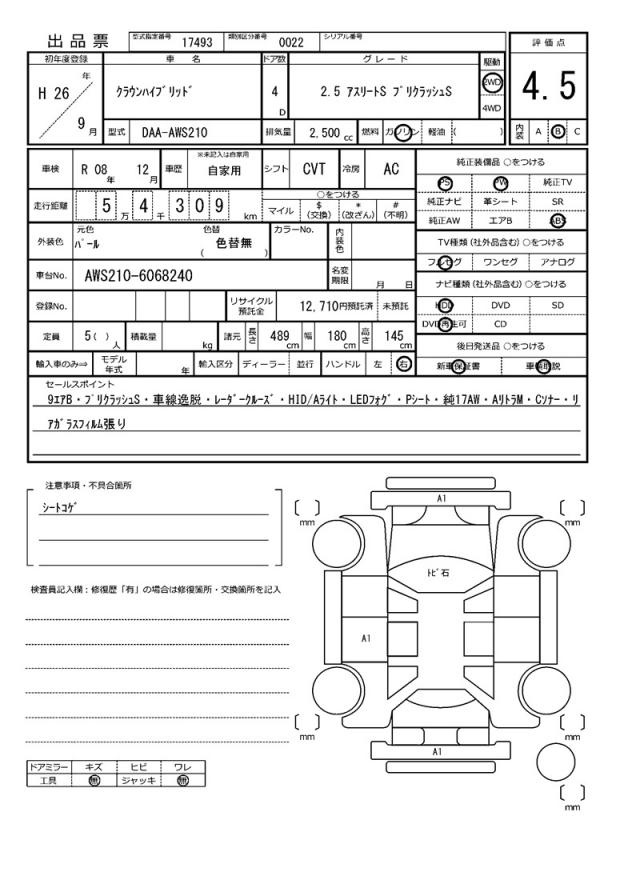 出品票
型式指定番号 17493 類別区分番号 0022 シリアル番号
初年度登録 車名 ドア数 グレード 駆動 評価点
H 26 年 9 月
クラウンハイブリッド
4 D
2.5 アスリートS プリクラッシュS
2WD
4WD
4.5
型式 DAA-AWS210 排気量 2,500 cc 燃料 ガソリン 軽油 ( )
内装 A B C
車検 R 08 年 12 月 車歴 ※未記入は自家用 自家用 シフト CVT 冷房 AC
走行距離 5 万 4 千 3 0 9 km
○をつける
マイル $(交換) *(改ざん) #(不明)
外装色 元色 パール 色替 ( 色替無 ) カラーNo. 内装色
車台No. AWS210-6068240 名変期限 月 日
登録No. リサイクル預託金 12,710円預託済 未預託
定員 5( ) 人 積載量 kg 諸元 長さ 489 cm 幅 180 cm 高さ 145 cm
輸入車のみ⇒ モデル年式 年 輸入区分 ディーラー 並行 ハンドル 左 右
純正装備品 ○をつける
PS PW 純正TV
純正ナビ 革シート SR
純正AW エアB ABS
TV種類 (社外品含む) ○をつける
フルセグ ワンセグ アナログ
ナビ種類 (社外品含む) ○をつける
HDD DVD SD
DVD再生可 CD
後日発送品 ○をつける
新車保証書 車輌取説
セールスポイント
9エアB・プリクラッシュS・車線逸脱・レーダークルーズ・HID/Aライト・LEDフォグ・Pシート・純17AW・AリトラM・Cソナー・リ
アガラスフィルム張り
注意事項・不具合箇所
シートコゲ
検査員記入欄：修復歴「有」の場合は修復箇所・交換箇所を記入
A1
mm
mm
トビ石
A1
mm
mm
A1
mm
ドアミラー キズ ヒビ ワレ
工具 無 ジャッキ 無